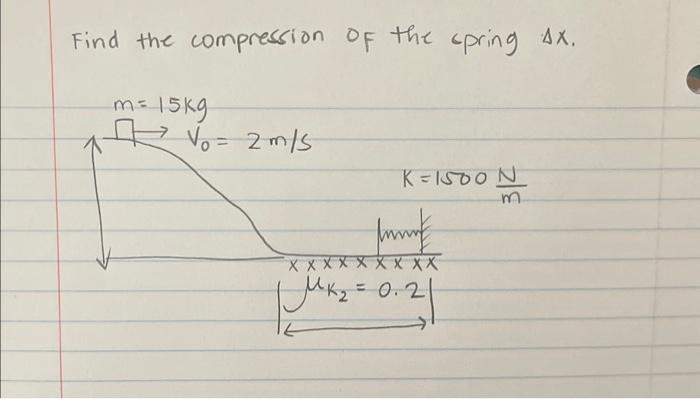 Find the compression of the spring Δx.
m = 15kg
V₀ = 2 m/s
K = 1500 N/m
x x x x x x x x x
μK₂ = 0.2